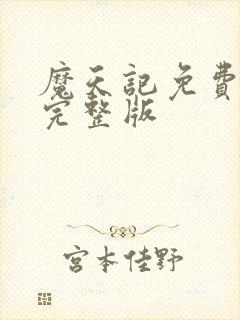 魔天記免費
完整版
宮本佳野